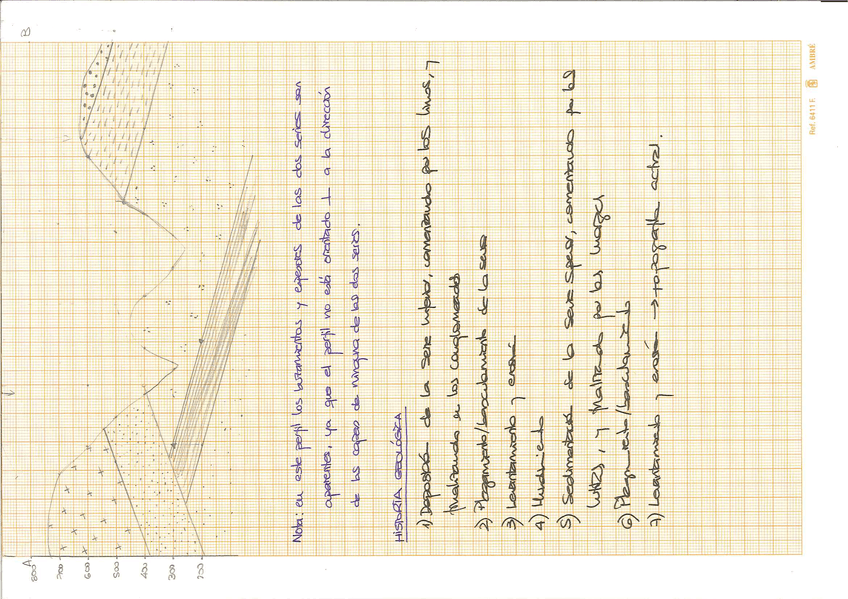 A
B
800
700
600
500
400
300
200
Nota: en este perfil los buzamientos y espesores de las dos series son
aparentes, ya que el perfil no está orientado ⊥ a la dirección
de las capas de ninguna de las dos series.
HISTORIA GEOLÓGICA
1) Deposición de la serie inferior, comenzando por los limos, y
finalizando en los conglomerados
2) Plegamiento/basculamiento de la serie
3) Levantamiento y erosión
4) Hundimiento
5) Sedimentación de la serie superior, comenzando por las
y finalizando por las margas
6) Plegamiento/basculamiento
7) Levantamiento y erosión → topografía actual.
Ref. 6411 F
AMBRÉ